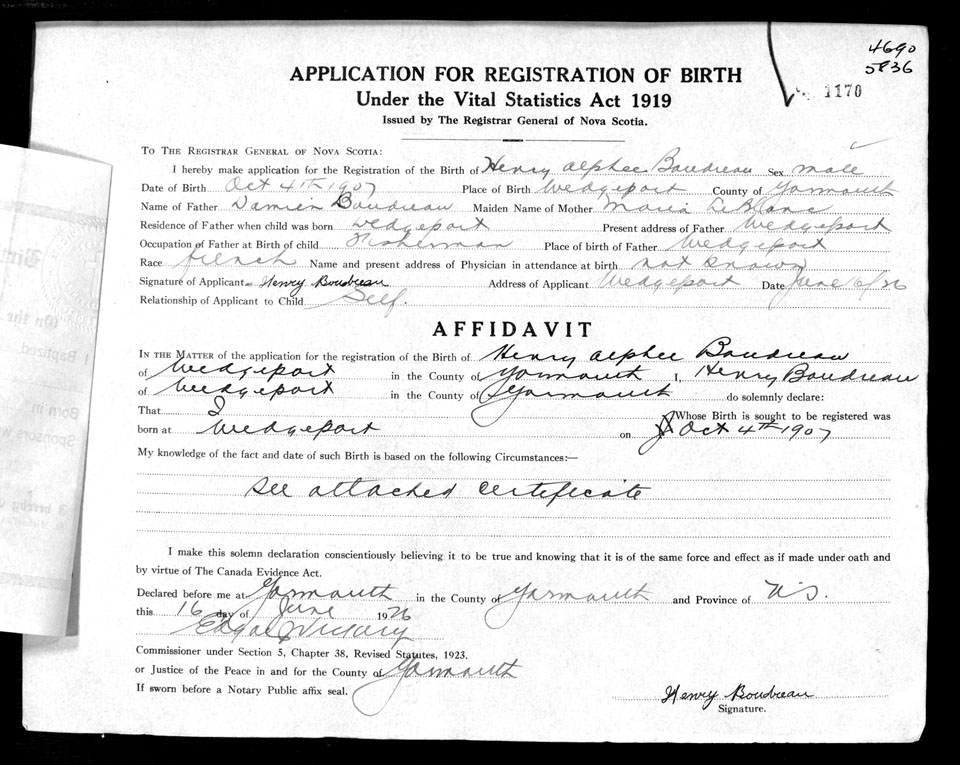 4690
5836
1170
APPLICATION FOR REGISTRATION OF BIRTH
Under the Vital Statistics Act 1919
Issued by The Registrar General of Nova Scotia.
To The Registrar General of Nova Scotia:
I hereby make application for the Registration of the Birth of Henry Alphee Boudreau Sex male
Date of Birth Oct 4th 1907 Place of Birth Wedgeport County of Yarmouth
Name of Father Damien Boudreau Maiden Name of Mother Maria LeBlanc
Residence of Father when child was born Wedgeport Present address of Father Wedgeport
Occupation of Father at Birth of child Fisherman Place of birth of Father Wedgeport
Race french Name and present address of Physician in attendance at birth not known
Signature of Applicant Henry Boudreau Address of Applicant Wedgeport Date June 16/26
Relationship of Applicant to Child Self.
AFFIDAVIT
In the Matter of the application for the registration of the Birth of Henry Alphee Boudreau
of Wedgeport in the County of Yarmouth I, Henry Boudreau
of Wedgeport in the County of Yarmouth do solemnly declare:
That I Whose Birth is sought to be registered was
born at Wedgeport on Oct 4th 1907
My knowledge of the fact and date of such Birth is based on the following Circumstances:—
See attached certificate
I make this solemn declaration conscientiously believing it to be true and knowing that it is of the same force and effect as if made under oath and
by virtue of The Canada Evidence Act.
Declared before me at Yarmouth in the County of Yarmouth and Province of N.S.
this 16 day of June 1926
Edgar Vickery
Commissioner under Section 5, Chapter 38, Revised Statutes, 1923.
or Justice of the Peace in and for the County of Yarmouth
If sworn before a Notary Public affix seal.
Henry Boudreau
Signature.